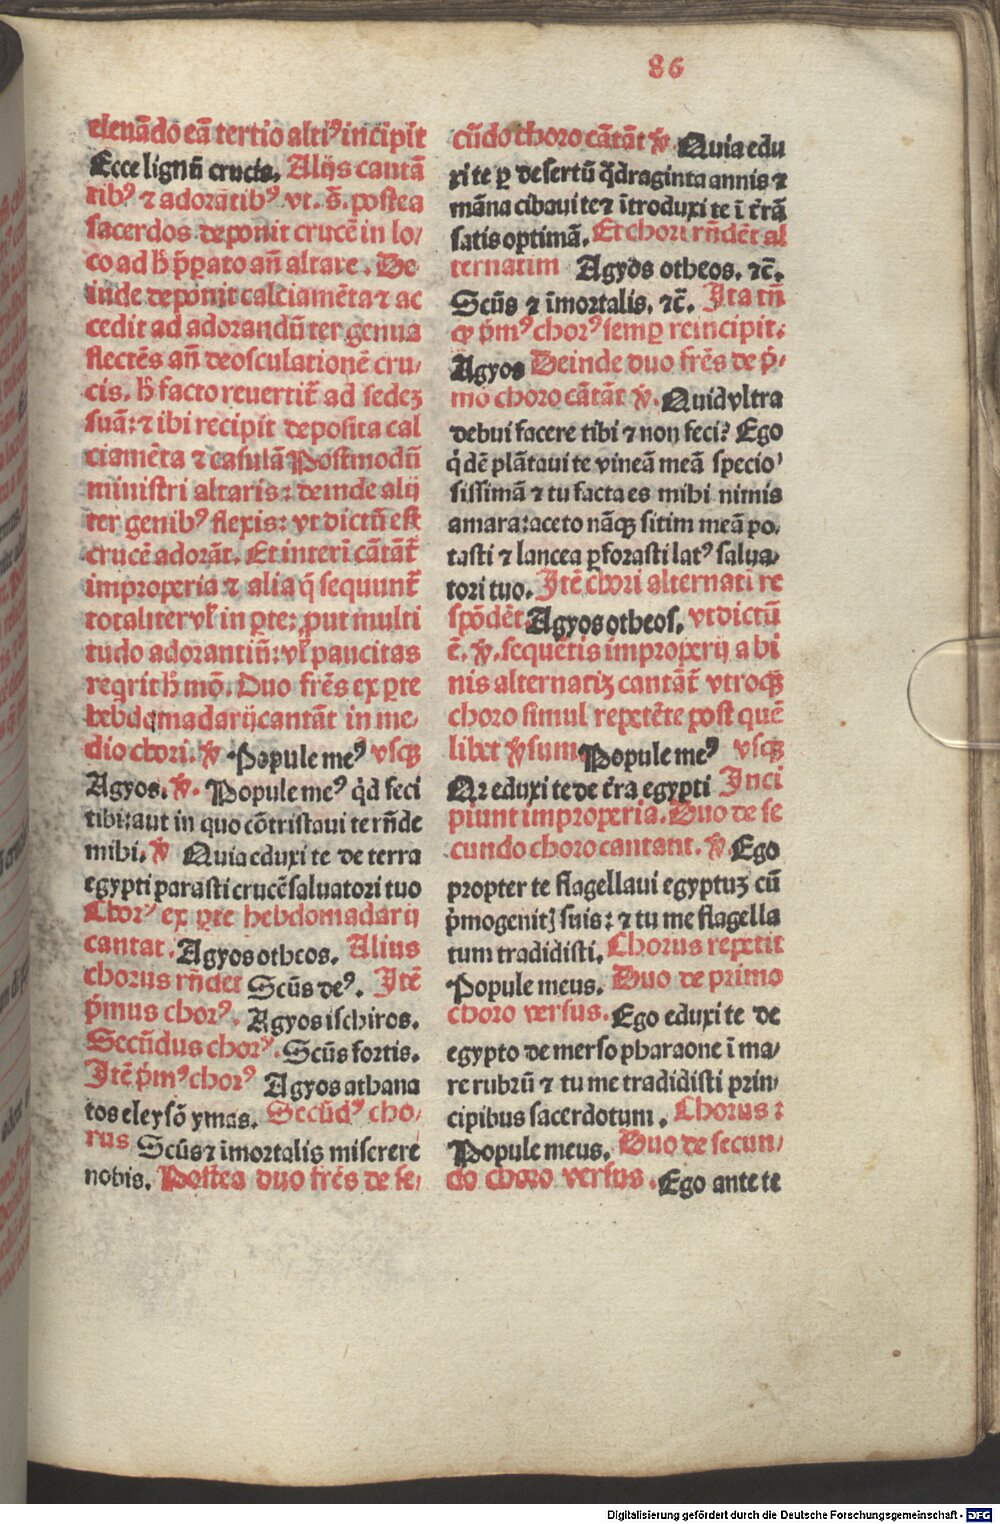 86
eleuādo eā tertio altiꝰ incipit
Ecce lignū crucis. Alijs cantā
tibꝰ ⁊ adorātibꝰ vt. s̄. postea
sacerdos deponit crucē in lo/
co ad h̄ p̄ꝑato añ altare. De
inde deponit calciamēta ⁊ ac
cedit ad adorandū ter genua
flectēs añ deosculationē cru/
cis. h̄ facto reuertit̄ ad sedeʒ
suā: ⁊ ibi recipit deposita cal
ciamēta ⁊ casulā Postmodū
ministri altaris: deinde alij
ter genibꝰ flexis: vt dictū est
crucē adorāt. Et interī cātāt̄
improperia ⁊ alia q̄ sequunt̄
totaliter vl̓ in ꝑte: ꝓut multi
tudo adorantiū: vl̓ paucitas
reqrit h̄ mō. Duo fr̄es ex ꝑte
hebdomadarij cantāt in me/
dio chori. ℣ Popule meꝰ vsqꝫ
Agyos. ℣. Popule meꝰ qd̄ feci
tibi: aut in quo cōtristaui te rñde
mihi. ℣ Quia eduxi te de terra
egypti parasti crucē saluatori tuo
Chorꝰ ex ꝑte hebdomadarij
cantat. Agyos otheos. Alius
chorus rñdet Scūs deꝰ. Itē
p̄mus chorꝰ. Agyos ischiros.
Secūdus chorꝰ. Scūs fortis.
Itē p̄mꝰ chorꝰ Agyos athana
tos eleysō ymas. Secūdꝰ cho/
rus Scūs ⁊ īmortalis miserere
nobis. Postea duo fr̄es de se/
cūdo choro cātāt ℣. Quia edu
xi te ꝑ desertū qd̄raginta annis ⁊
māna cibaui te ⁊ ītroduxi te ī t̄rā
satis optimā. Et chori rñdēt al
ternatim Agyos otheos. ⁊c̄.
Scūs ⁊ īmortalis. ⁊c̄. Ita tñ
ꝙ p̄mꝰ chorꝰ semꝑ reincipit.
Agyos Deinde duo fr̄es de p̄/
mo choro cātāt ℣. Quid vltra
debui facere tibi ⁊ non feci? Ego
q̇dē plātaui te vineā meā specio/
sissimā ⁊ tu facta es mihi nimis
amara: aceto nāqꝫ sitim meā po/
tasti ⁊ lancea ꝑforasti latꝰ salua/
tori tuo. Itē chori alternati re
spōdēt Agyos otheos. vt dictū
ē. ℣. sequētis improperij a bi
nis alternatiʒ cantāt̄ vtroqꝫ
choro simul repetēte post quē
libet ℣sum Popule meꝰ vsqꝫ
Qr eduxi te de t̄ra egypti Inci
piunt improperia. Duo de se
cundo choro cantant. ℣ Ego
propter te flagellaui egyptuʒ cū
p̄mogenitꝭ suis: ⁊ tu me flagella
tum tradidisti. Chorus repetit
Popule meus. Duo de primo
choro versus. Ego eduxi te de
egypto demerso pharaone ī ma/
re rubrū ⁊ tu me tradidisti prin/
cipibus sacerdotum. Chorus:
Popule meus. Duo de secun/
do choro versus. Ego ante te
Digitalisierung gefördert durch die Deutsche Forschungsgemeinschaft - DFG